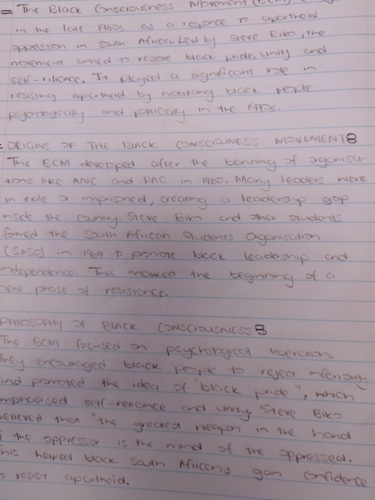 = The Black Consciousness Movement (BCM)
in the late 1960s as a response to apartheid
oppression in South Africa. Led by Steve Biko, the
movement aimed to restore black pride, unity and
self-reliance. It played a significant role in
resisting apartheid by mobilising black people
psychologically and politically in the 1970s.
= ORIGINS OF THE BLACK CONSCIOUSNESS MOVEMENT:
The BCM developed after the banning of organisa-
tions like ANC and PAC in 1960. Many leaders were
in exile or imprisoned, creating a leadership gap
inside the country. Steve Biko and other students
formed the South African Students Organisation
(SASO) in 1969 to promote black leadership and
independence. This marked the beginning of a
new phase of resistance.
PHILOSOPHY OF BLACK CONSCIOUSNESS:
The BCM focused on psychological liberation.
They encouraged black people to reject inferiority
and promoted the idea of "black pride", which
emphasised self-reliance and unity. Steve Biko
believed that "the greatest weapon in the hand
of the oppressor is the mind of the oppressed.
This helped black South Africans gain confidence
to resist apartheid.